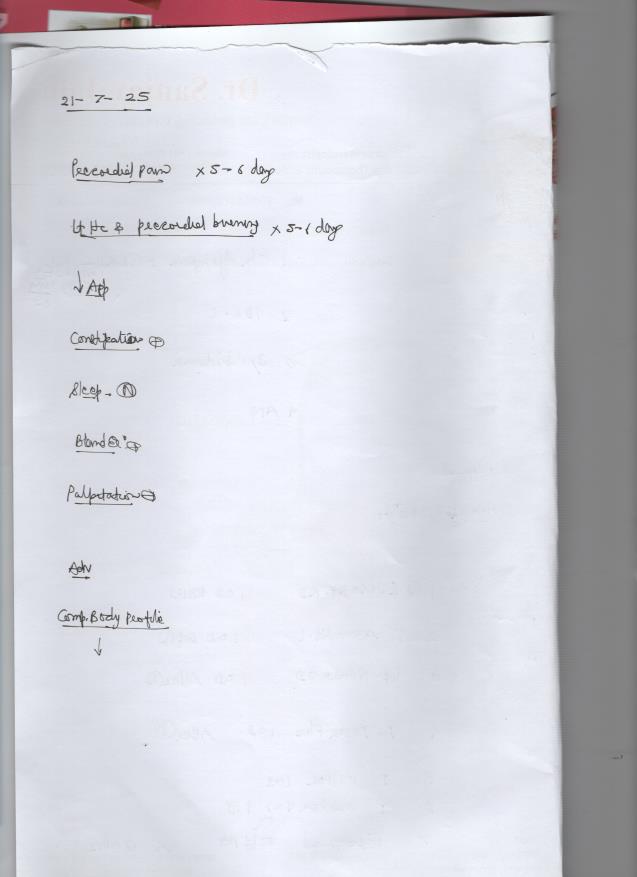 21- 7- 25
Precordial pain x 5-6 day
Lt Hc & precordial burning x 5-6 day
↓ App
Constipation ⊕
Sleep - Ⓝ
Palpetation
Adv
Comp. Body profile
↓